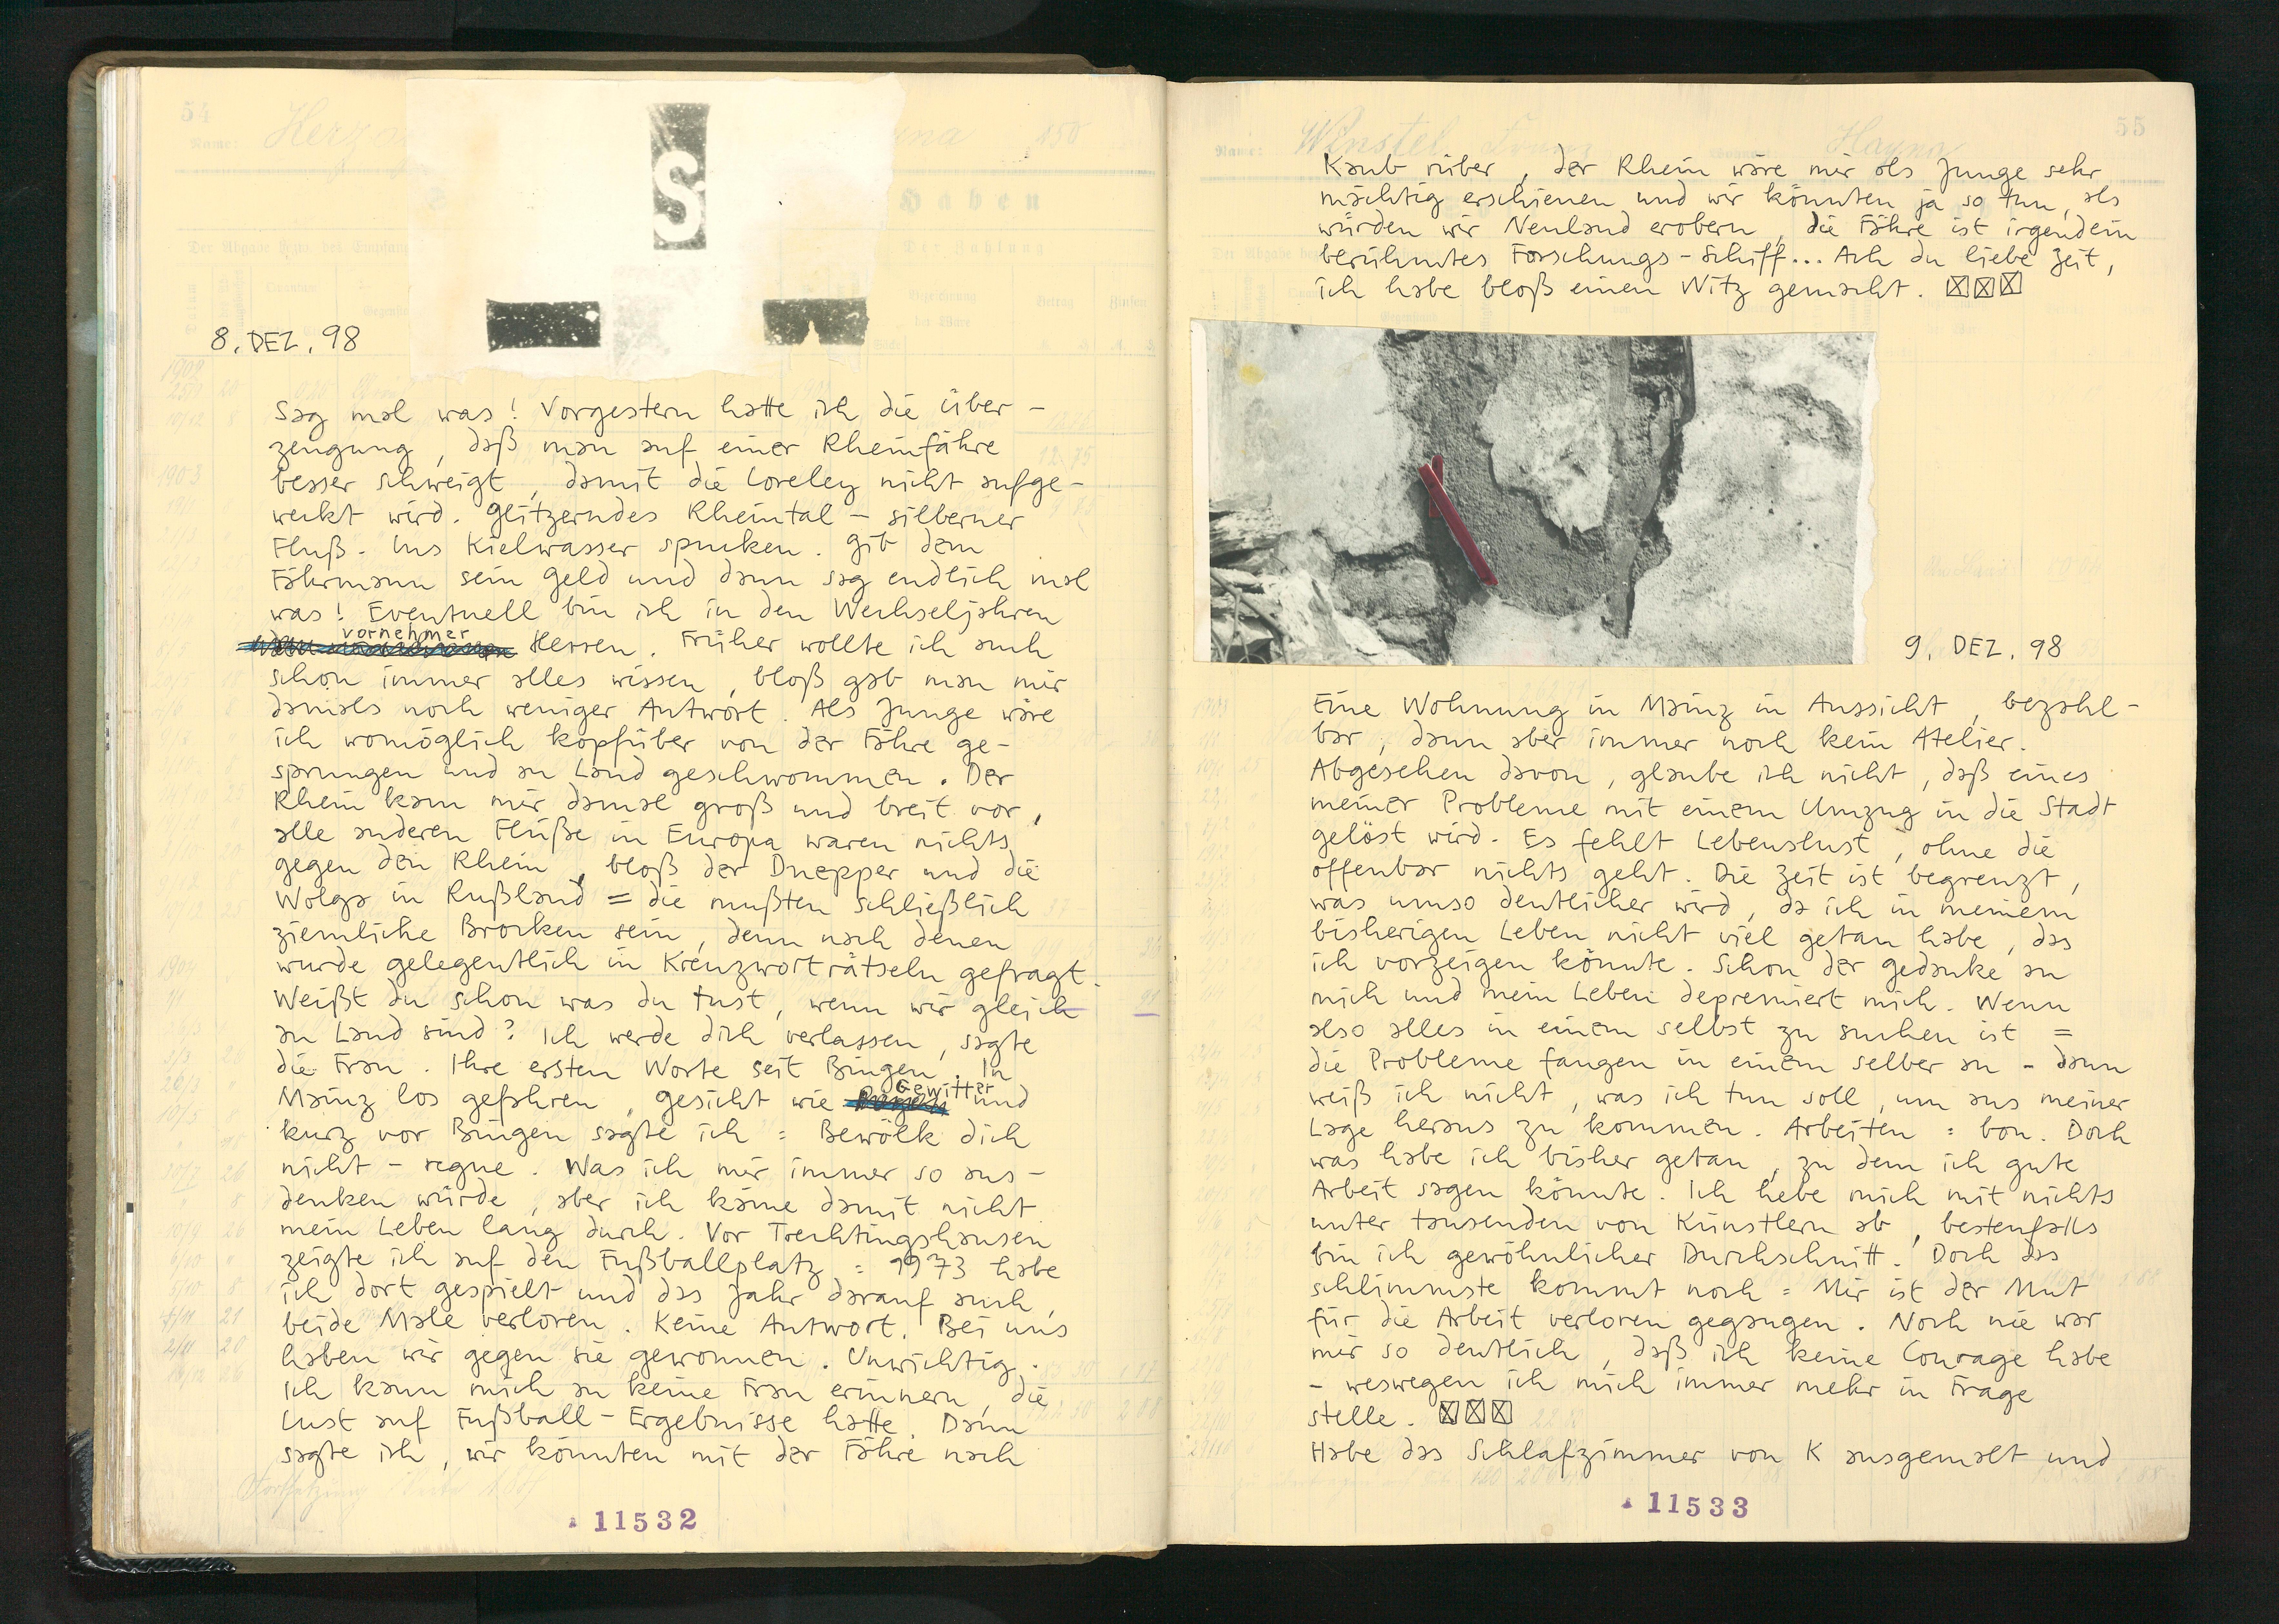 54
Name:
S
Haben
8. DEZ. 98
Sag mal was! Vorgestern hatte ich die Über-
zeugung, daß man auf einer Rheinfähre
besser schweigt, damit die Loreley nicht aufge-
weckt wird. Glitzerndes Rheintal – silberner
Fluß. Ins Kielwasser spucken. Gib dem
Fährmann sein Geld und dann sag endlich mal
was! Eventuell bin ich in den Wechseljahren
vornehmer
Herren. Früher wollte ich auch
schon immer alles wissen, bloß gab man mir
damals noch weniger Antwort. Als Junge wäre
ich womöglich kopfüber von der Fähre ge-
sprungen und an Land geschwommen. Der
Rhein kam mir damal groß und breit vor,
alle anderen Flüße in Europa waren nichts
gegen den Rhein, bloß der Dnepper und die
Wolga in Rußland = die mußten schließlich
ziemliche Brocken sein, denn nach denen
wurde gelegentlich in Kreuzworträtseln gefragt.
Weißt du schon was du tust, wenn wir gleich
an Land sind? Ich werde dich verlassen, sagte
die Frau. Ihre ersten Worte seit Bingen. In
Gewitter
Mainz los gefahren, Gesicht wie und
kurz vor Bingen sagte ich = Bewölk dich
nicht – regne. Was ich mir immer so aus-
denken würde, aber ich käme damit nicht
mein Leben lang durch. Vor Trechtingshausen
zeigte ich auf den Fußballplatz = 1973 habe
ich dort gespielt und das Jahr darauf auch,
beide Male verloren. Keine Antwort. Bei uns
haben wir gegen sie gewonnen. Unwichtig.
Ich kann mich an keine Frau erinnern, die
Lust auf Fußball-Ergebnisse hatte. Dann
sagte ich, wir könnten mit der Fähre nach
11532
55
Winstel
Hayna
Kaub rüber, der Rhein wäre mir als Junge sehr
mächtig erschienen und wir könnten ja so tun, als
würden wir Neuland erobern, die Fähre ist irgendein
berühmtes Forschungs-Schiff... Ach du liebe Zeit,
ich habe bloß einen Witz gemacht. ☒☒☒
9. DEZ. 98
Eine Wohnung in Mainz in Aussicht, bezahl-
bar, dann aber immer noch kein Atelier.
Abgesehen davon, glaube ich nicht, daß eines
meiner Probleme mit einem Umzug in die Stadt
gelöst wird. Es fehlt Lebenslust, ohne die
offenbar nichts geht. Die Zeit ist begrenzt,
was umso deutlicher wird, da ich in meinem
bisherigen Leben nicht viel getan habe, das
ich vorzeigen könnte. Schon der Gedanke an
mich und mein Leben depremiert mich. Wenn
also alles in einem selbst zu suchen ist =
die Probleme fangen in einem selber an – dann
weiß ich nicht, was ich tun soll, um aus meiner
Lage heraus zu kommen. Arbeiten = bon. Doch
was habe ich bisher getan, zu dem ich gute
Arbeit sagen könnte. Ich hebe mich mit nichts
unter tausenden von Künstlern ab, bestenfalls
bin ich gewöhnlicher Durchschnitt. Doch das
schlimmste kommt noch = Mir ist der Mut
für die Arbeit verloren gegangen. Noch nie war
mir so deutlich, daß ich keine Courage habe
– weswegen ich mich immer mehr in Frage
stelle. ☒☒☒
Habe das Schlafzimmer von K ausgemalt und
11533